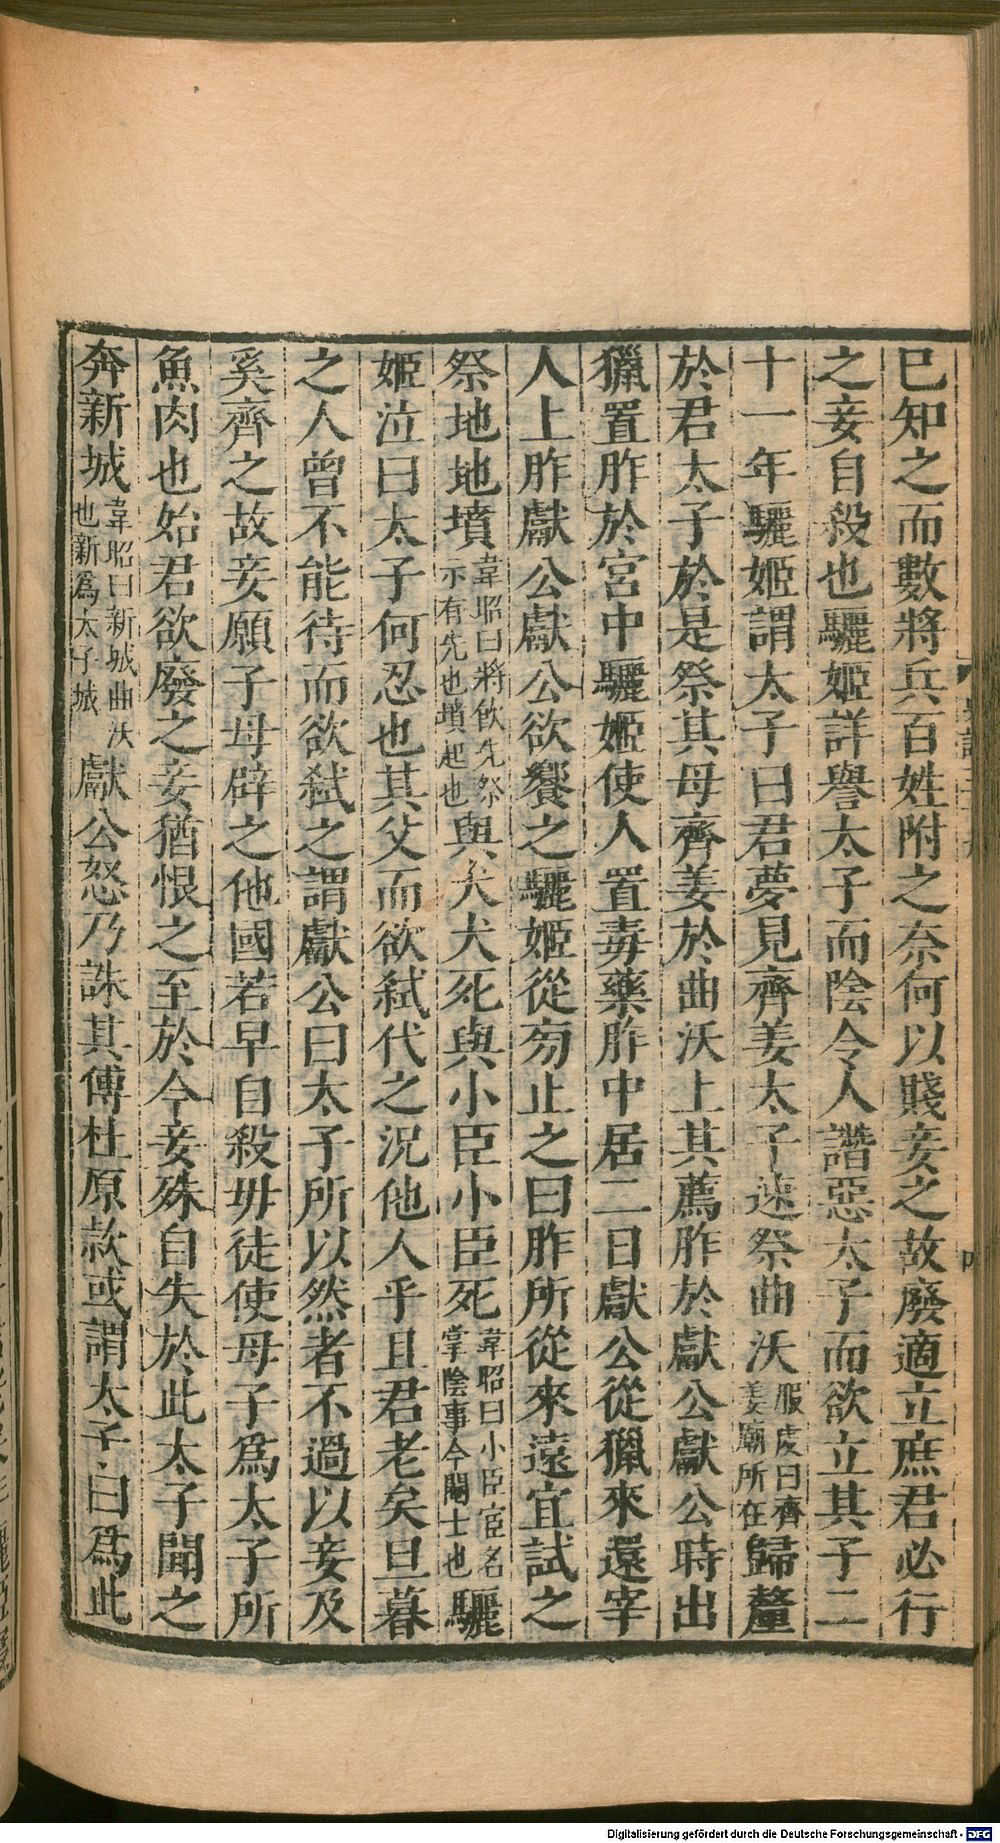 已知之而數將兵百姓附之奈何以賤妾之故廢適立庶君必行
之妾自殺也驪姬詳譽太子而陰令人譖惡太子而欲立其子二
十一年驪姬謂太子曰君夢見齊姜太子速祭曲沃服虔曰齊姜廟所在歸釐
於君太子於是祭其母齊姜於曲沃上其薦胙於獻公獻公時出
獵置胙於宮中驪姬使人置毒藥胙中居二日獻公從獵來還宰
人上胙獻公獻公欲饗之驪姬從旁止之曰胙所從來遠宜試之
祭地地墳韋昭曰將飲先祭示有先也墳起也與犬犬死與小臣小臣死韋昭曰小臣官名掌陰事今閹士也驪
姬泣曰太子何忍也其父而欲弒代之況他人乎且君老矣旦暮
之人曾不能待而欲弒之謂獻公曰太子所以然者不過以妾及
奚齊之故妾願子母辟之他國若早自殺毋徒使母子爲太子所
魚肉也始君欲廢之妾猶恨之至於今妾殊自失於此太子聞之
奔新城韋昭曰新城曲沃也新爲太子城獻公怒乃誅其傅杜原款或謂太子曰爲此
Digitalisierung gefördert durch die Deutsche Forschungsgemeinschaft - DFG